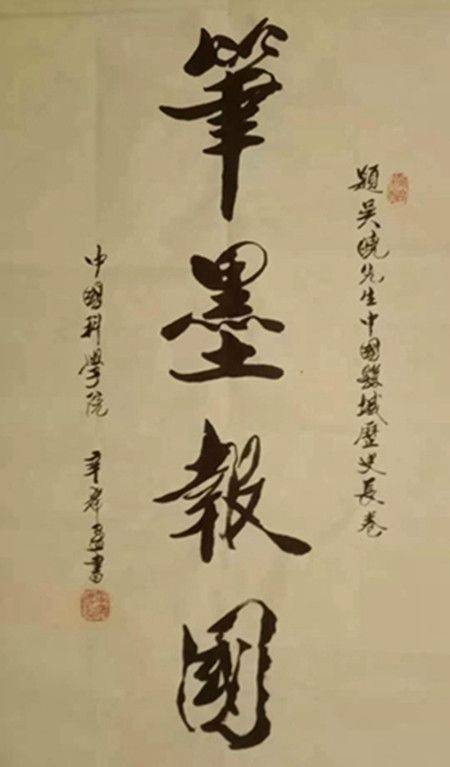 題吳曉先生中國疆域歷史長卷
筆墨報國
中國科學院
辛
書